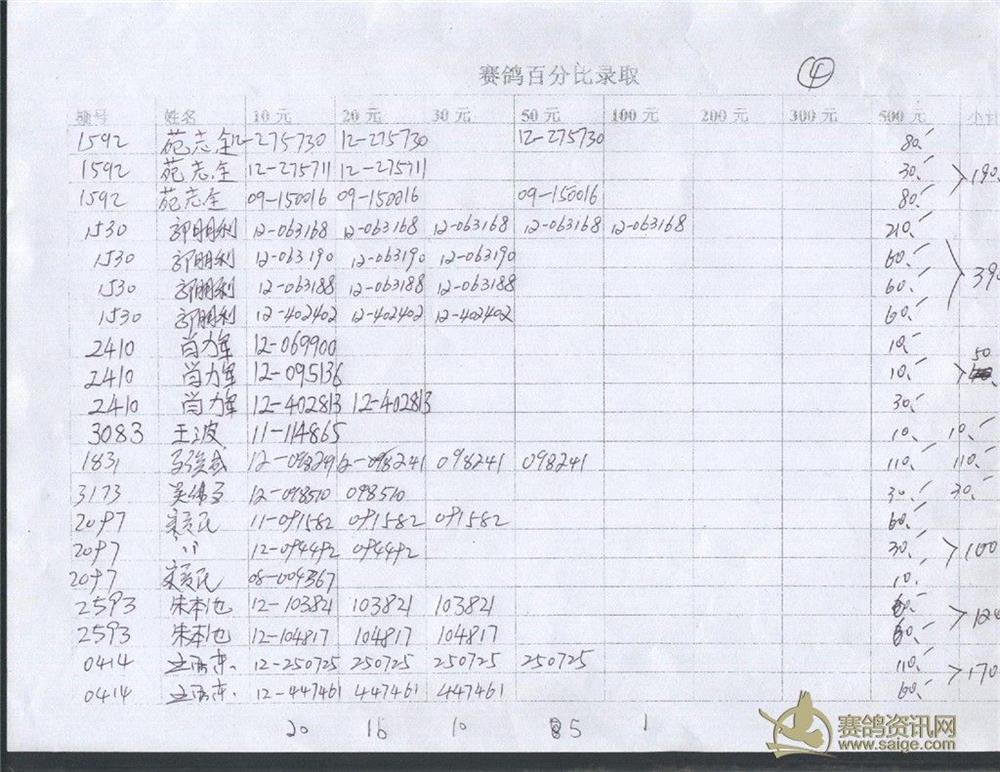 赛鸽百分比录取 ④
棚号 姓名 10元 20元 30元 50元 100元 200元 300元 500元 小计
1592 苑志全 12-275730 12-275730 12-275730 80.-
1592 苑志全 12-275711 12-275711 30.- 190.
1592 苑志全 09-150016 09-150016 09-150016 80.-
1530 郭朋利 12-063168 12-063168 12-063168 12-063168 12-063168 210.-
1530 郭朋利 12-063190 12-063190 12-063190 60.-
1530 郭朋利 12-063188 12-063188 12-063188 60.- 390
1530 郭朋利 12-402402 12-402402 12-402402 60.-
2410 肖力军 12-069900 10.-
2410 肖力军 12-095136 10.- 50
2410 肖力军 12-402813 12-402813 30.-
3083 王波 11-114865 10.- 10.-
1831 12-098241 12-098241 098241 098241 110.- 110.-
3173 12-098510 098510 30.- 30.-
2097 11-091582 091582 091582 60.-
2097 〃 12-094492 094492 30.- 100
2097 08-004367 10.-
2593 朱本池 12-103821 103821 103821 60.-
2593 朱本池 12-104817 104817 104817 60.- 120
0414 12-250725 250725 250725 250725 110.-
0414 12-447461 447461 447461 60.- 170
20 16 10 5 1
赛鸽资讯网
www.saige.com